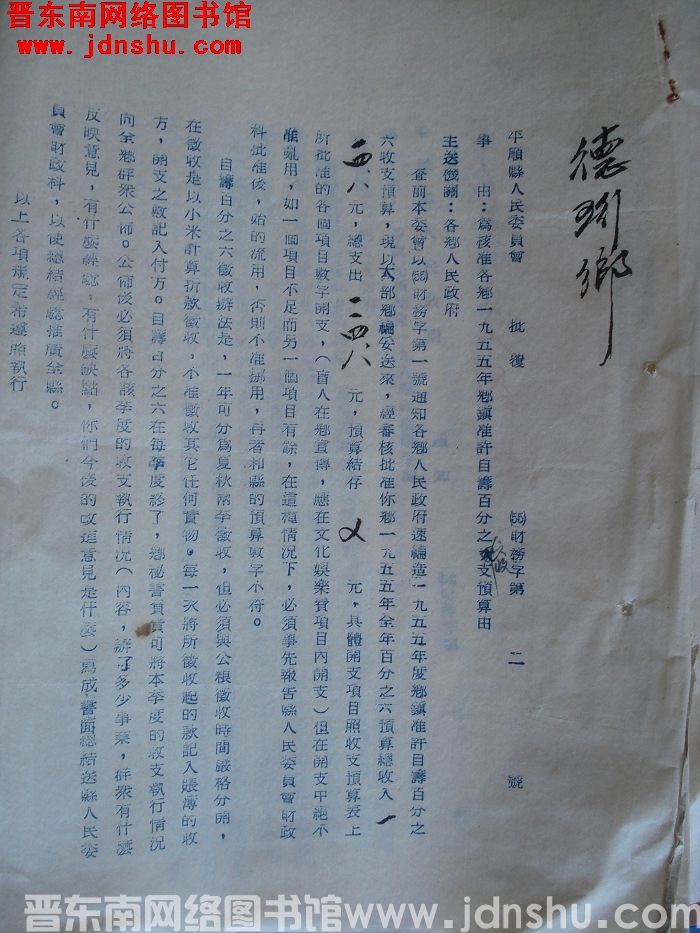 晋东南网络图书馆
www.jdnshu.com
德
鄉
平順縣人民委員會　批復　㊄財務字第　二　號
事　由：為核准各鄉一九五五年鄉鎮准許自籌百分之六收支預算由
主送機關：各鄉人民政府
查前本委會以㊄財務字第一號通知各鄉人民政府速編造一九五五年度鄉鎮准許自籌百分之
六收支預算，現以大部鄉編妥送來，經審核批准你鄉一九五五年全年百分之六預算總收入
元，總支出　元，預算結存　元，具體開支項目照收支預算表上
所批准的各個項目數字開支，（盲人在鄉宣傳，應在文化娛樂費項目內開支）但在開支中絕不
准亂用，如一個項目不足而另一個項目有餘，在這種情况下，必須事先報告縣人民委員會財政
科批准後，始的流用，否則不准挪用，再者和縣的預算數字不符。
自籌百分之六徵收辦法是，一年可分為夏秋兩季徵收，但必須與公粮徵收時間嚴格分開，
在徵收是以小米計算折款徵收，不准徵收其它任何實物。每一次將所徵收起的款記入賬簿的收
方，開支之數記入付方。自籌百分之六在每季度終了，鄉秘書負責可將本季度的收支執行情况
向全鄉群衆公佈。公佈後必須將各該季度的收支執行情况（內容，辦了多少事業，群衆有什麼
反映意見，有什麼經驗。有什麼缺點，你們今後的改進意見是什麼）寫成書面總結送縣人民委
員會財政科，以使總結經驗推廣全縣。
以上各項規定希遵照執行
晋东南网络图书馆 www.jdnshu.com